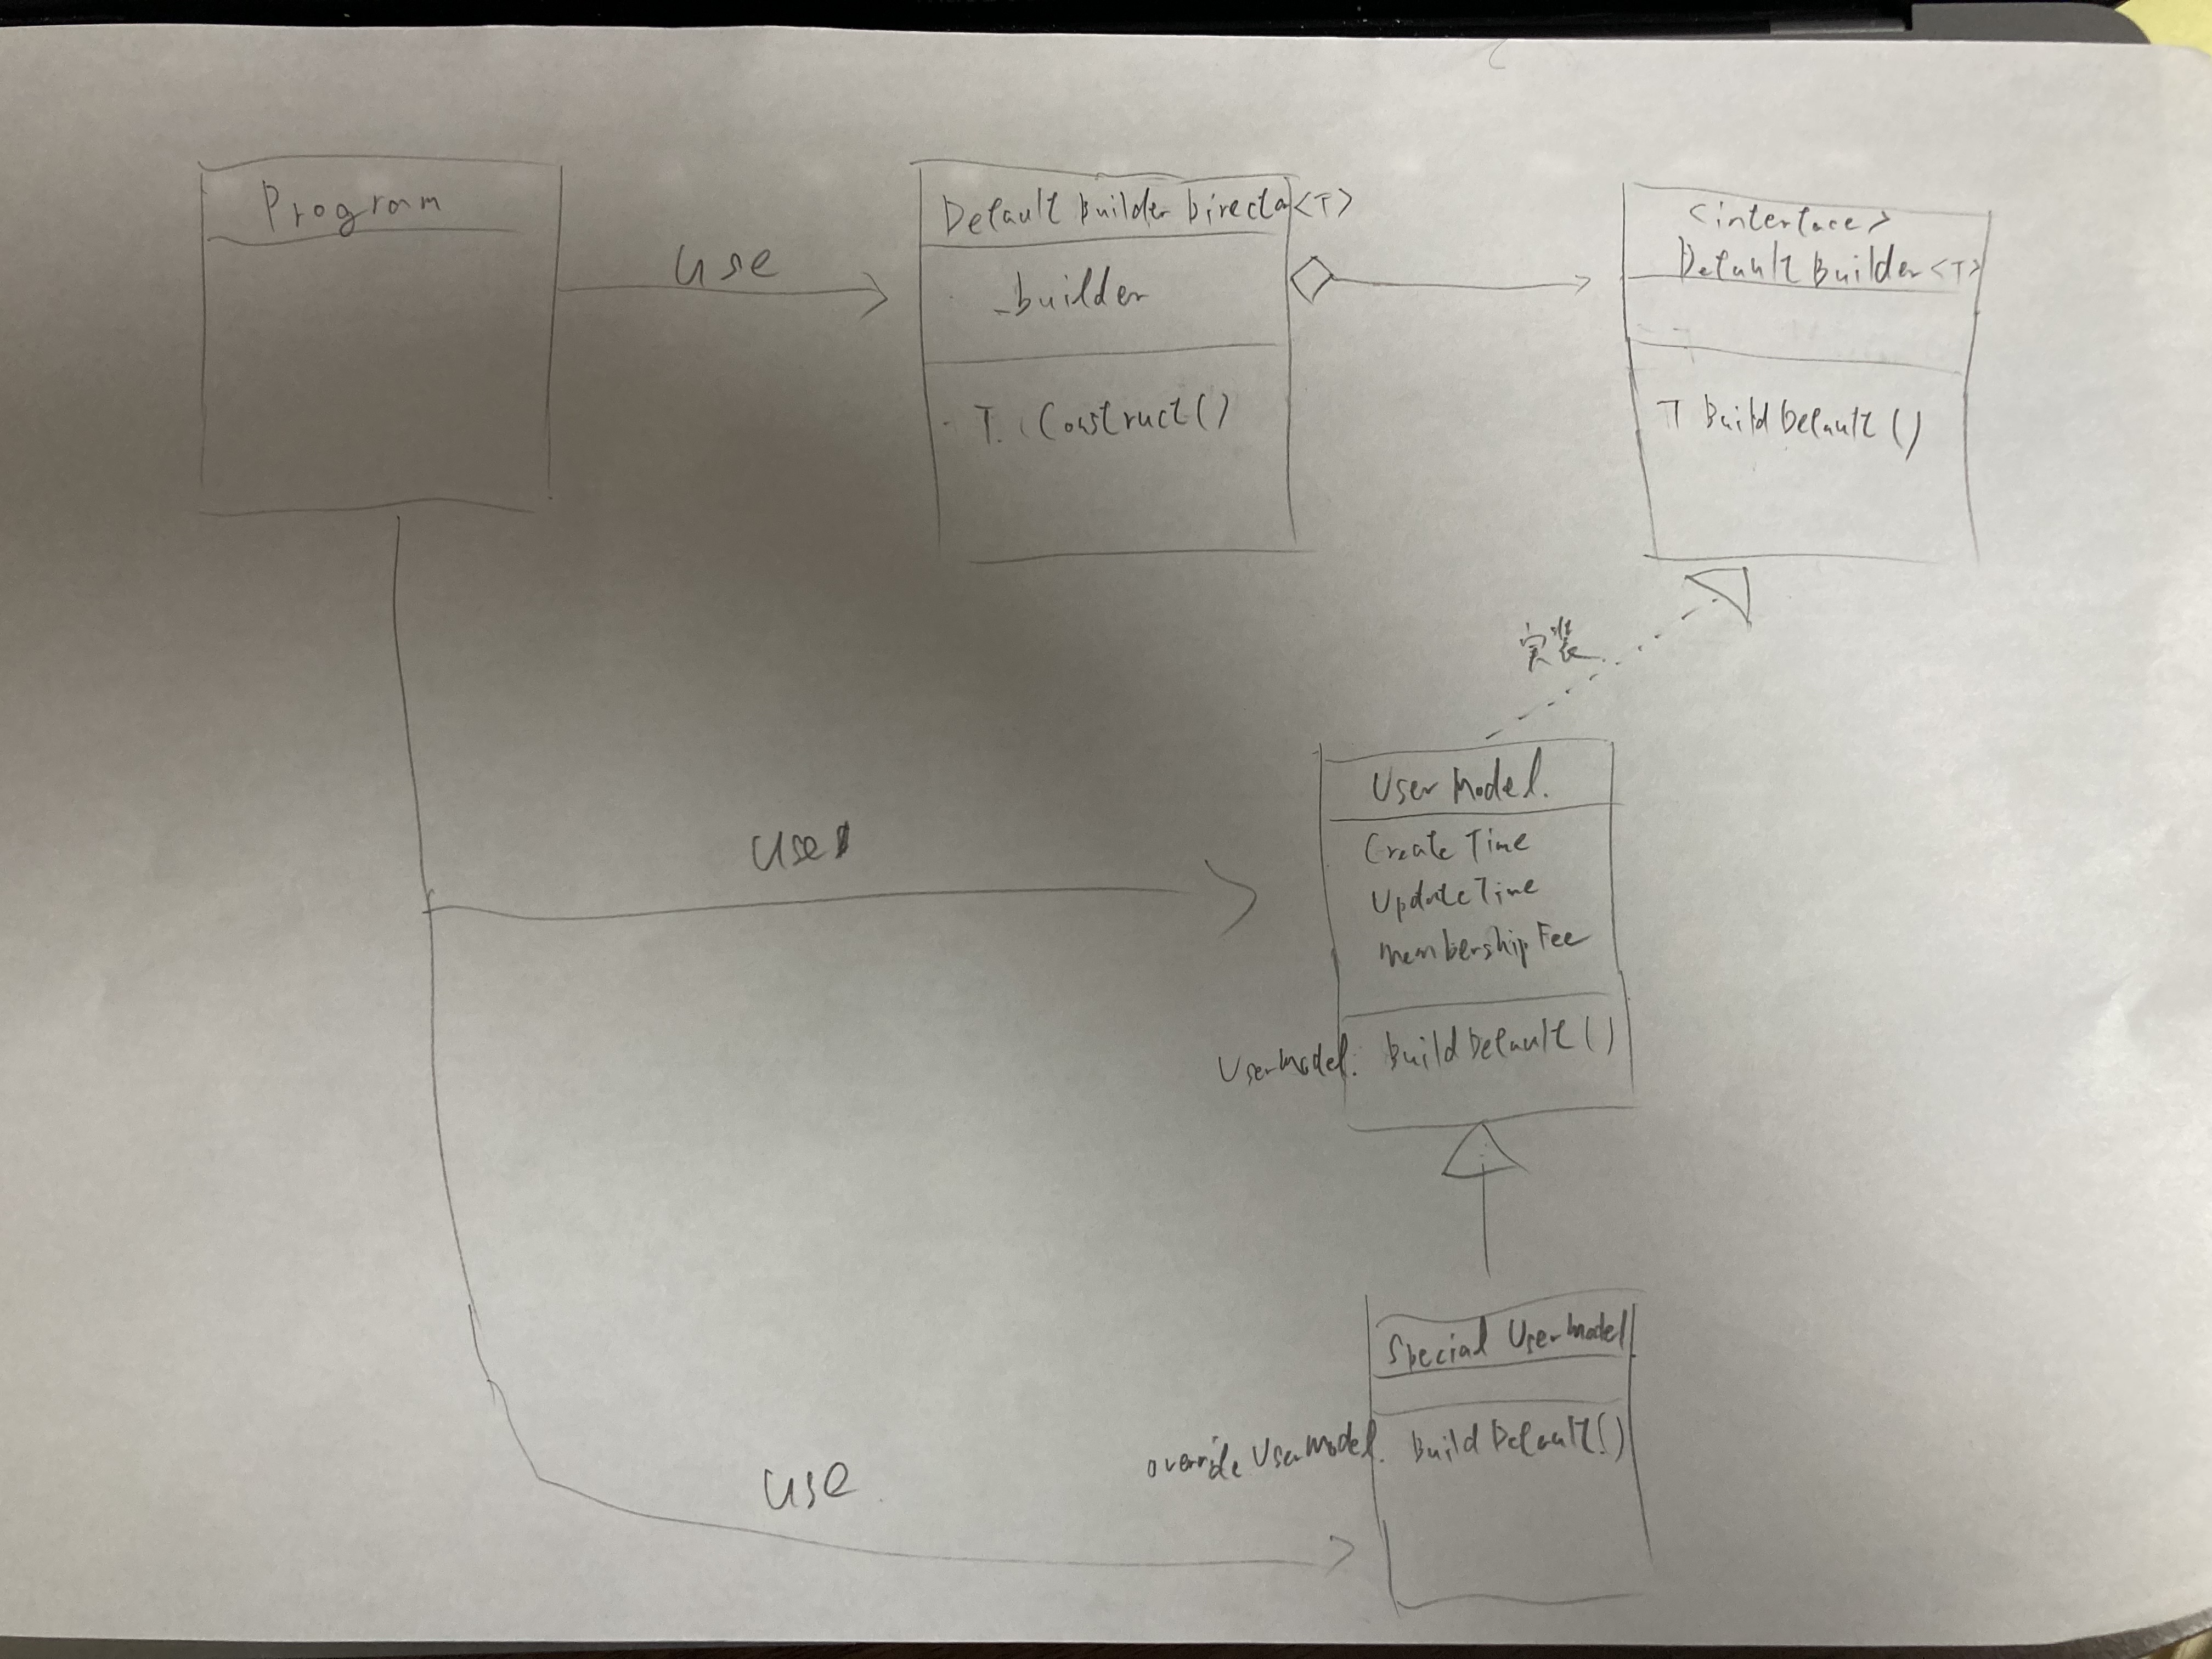 Program
use
Default Builder Director<T>
_builder
T. Construct()
<interface>
Default Builder<T>
T BuildDefault()
実装
use
User Model.
Create Time
Update Time
Membership Fee
UserModel. BuildDefault()
Special UserModel
override UserModel. BuildDefault()
use